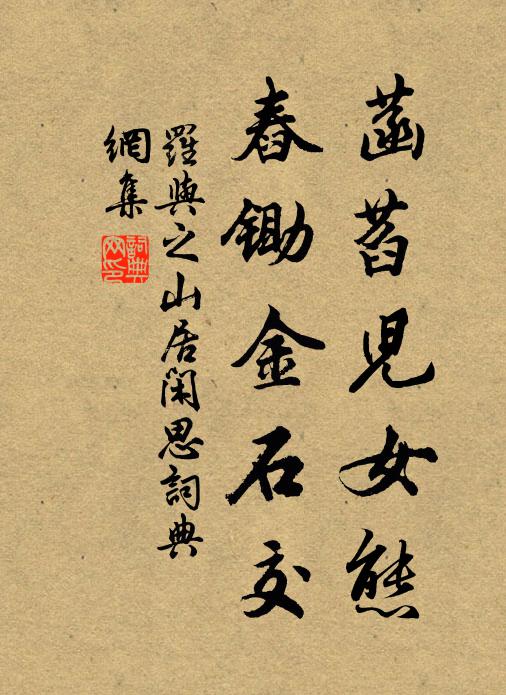 菡萏兒女態
舂鋤金石交
羅與之山居閑思詞典
網集
詞典網印